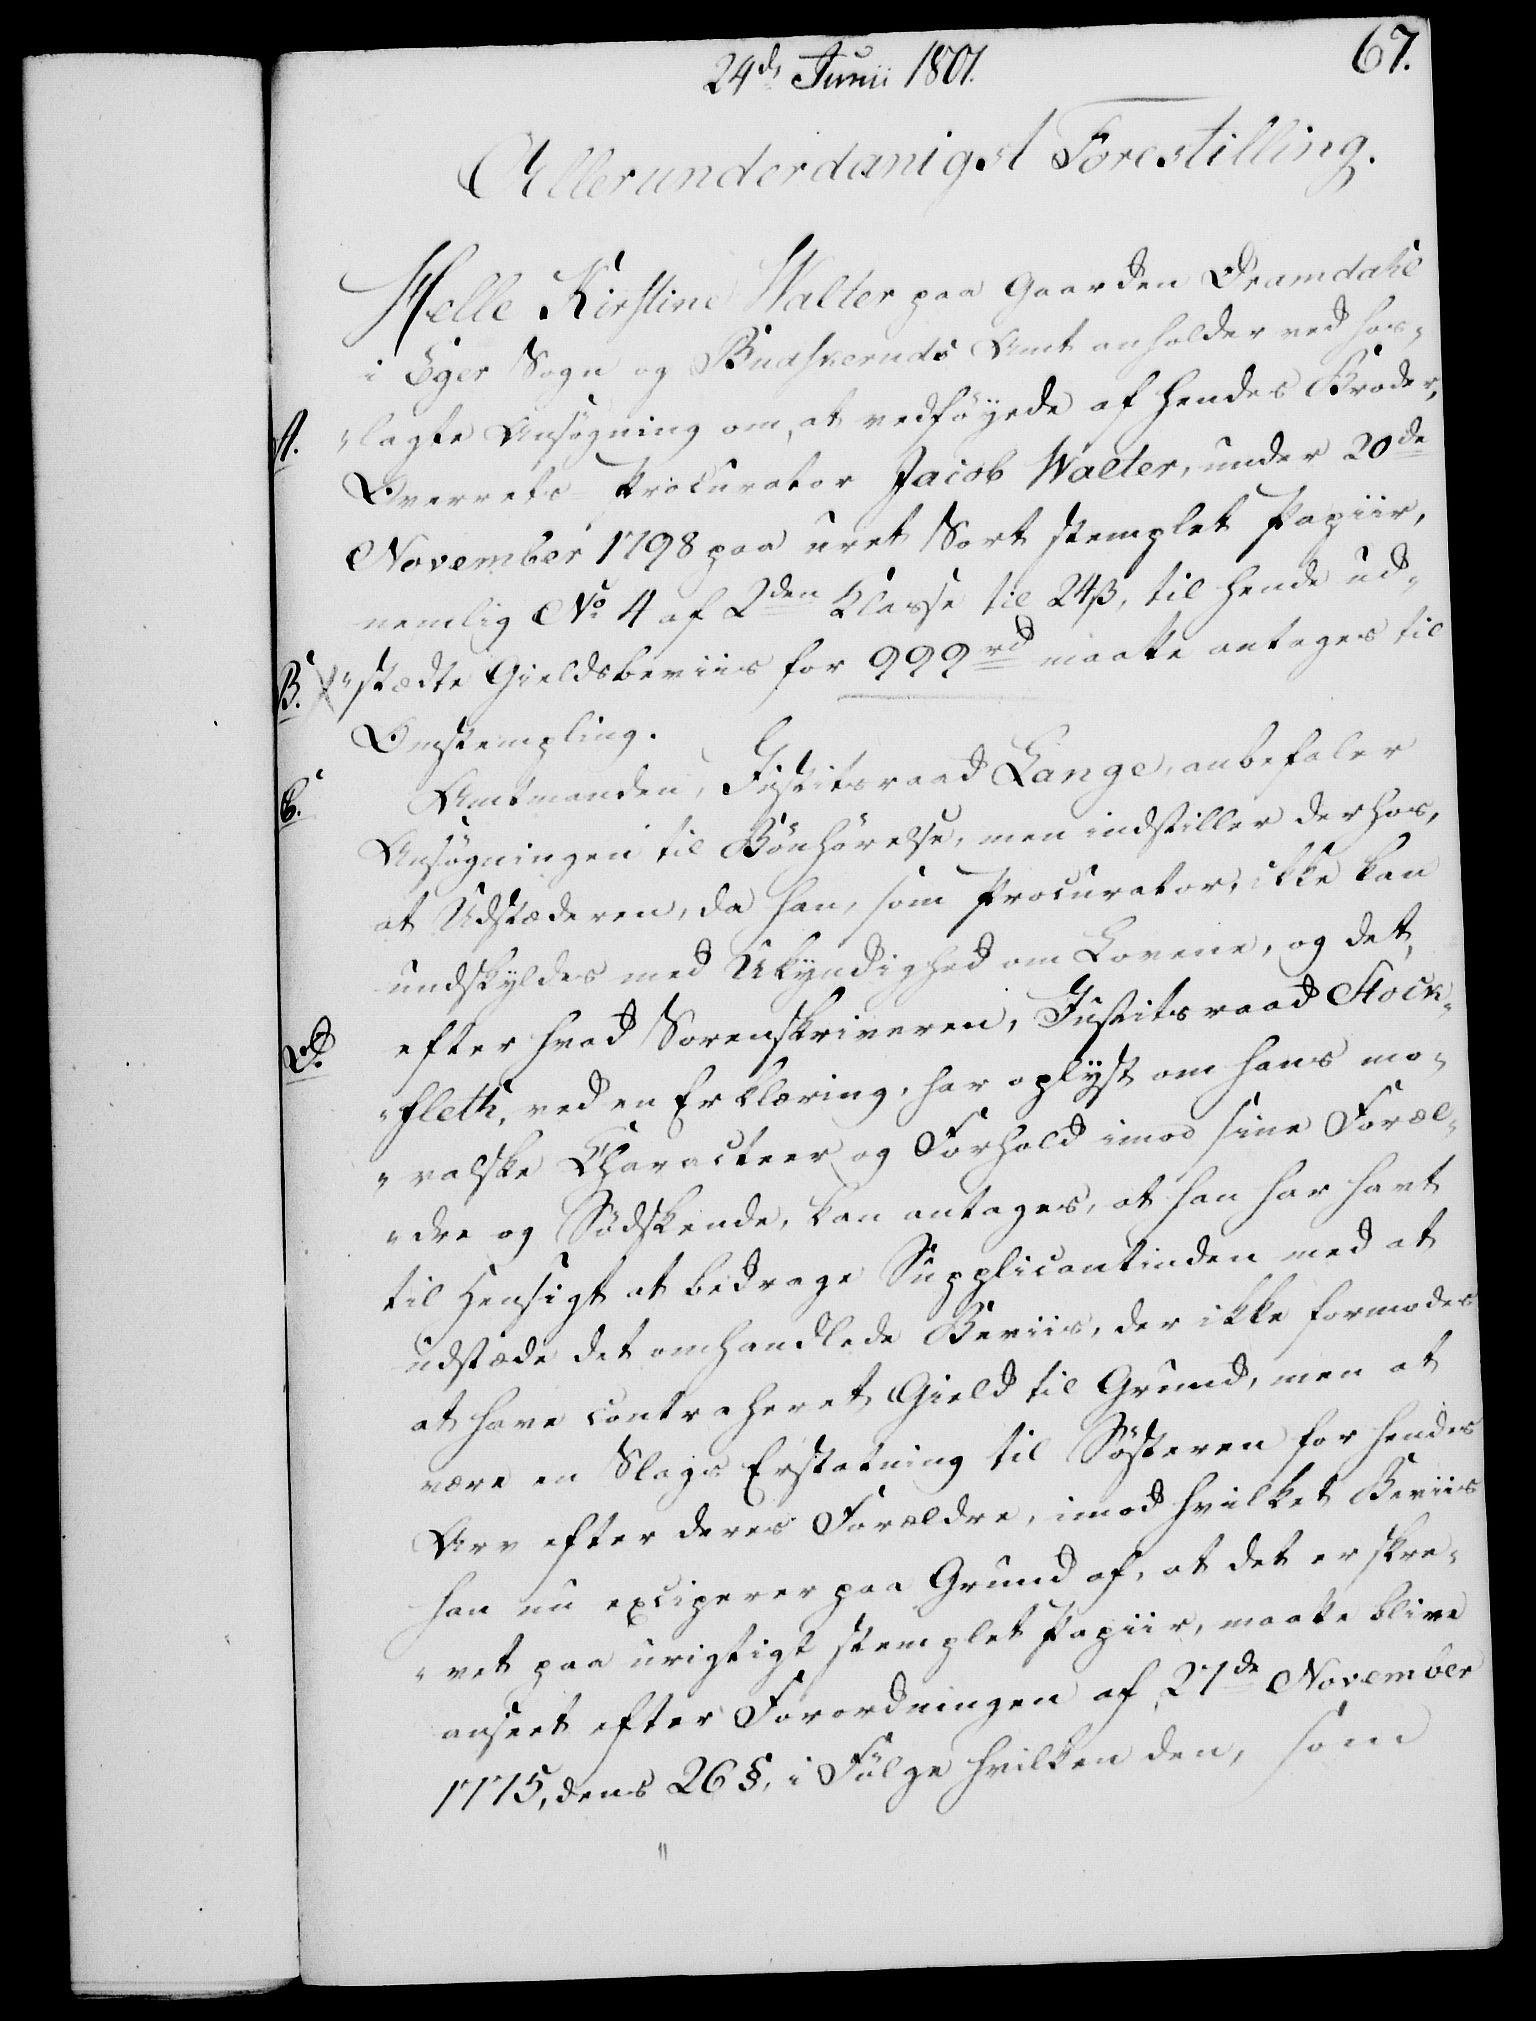 24de Junii 1801.
67.
Allerunderdanigst Forestilling.
Helle Kirstine Walter paa Gaarden Dramdahl
i Eger Sogn og Buskeruds Amt anholder ved hos-
A. "lagte Ansøgning om, at vedføyede af hendes Broder,
Overrets-Procurator Jacob Walter, under 20de
November 1798 paa uret Sort stemplet Papiir,
nemlig No 4 af 2den Classe til 24 ß, til hende ud-
B. "stædte Gieldsbeviis for 999 rd maatte antages til
Omstempling.
C. Amtmanden, Justitsraad Lange, anbefaler
Ansøgningen til Bönhörelse, men indstiller derhos,
at Udstæderen, da han, som Procurator, ikke kan
undskyldes med Ukyndighed om Lovene, og det,
efter hvad Sorenskriveren, Justitsraad Stock-
D. "fleth, ved en Erklæring, har oplyst om hans mo-
"ralske Characteer og Forhold imod sine Foræl-
"dre og Södskende, kan antages, at han har havt
til Hensigt at bedrage Supplicantinden med at
udstæde det omhandlede Beviis, der ikke formodes
at have contraheret Gield til Grund, men at
være en Slags Erstatning til Södsteren for hendes
Arv efter deres Forældre, imod hvilket Beviis
han nu exciperer paa Grund af, at det er skre-
"vet paa urigtigt stemplet Papiir, maatte blive
anseet efter Forordningen af 27de November
1775, dens 26 §, i Fölge hvilken den, som
"